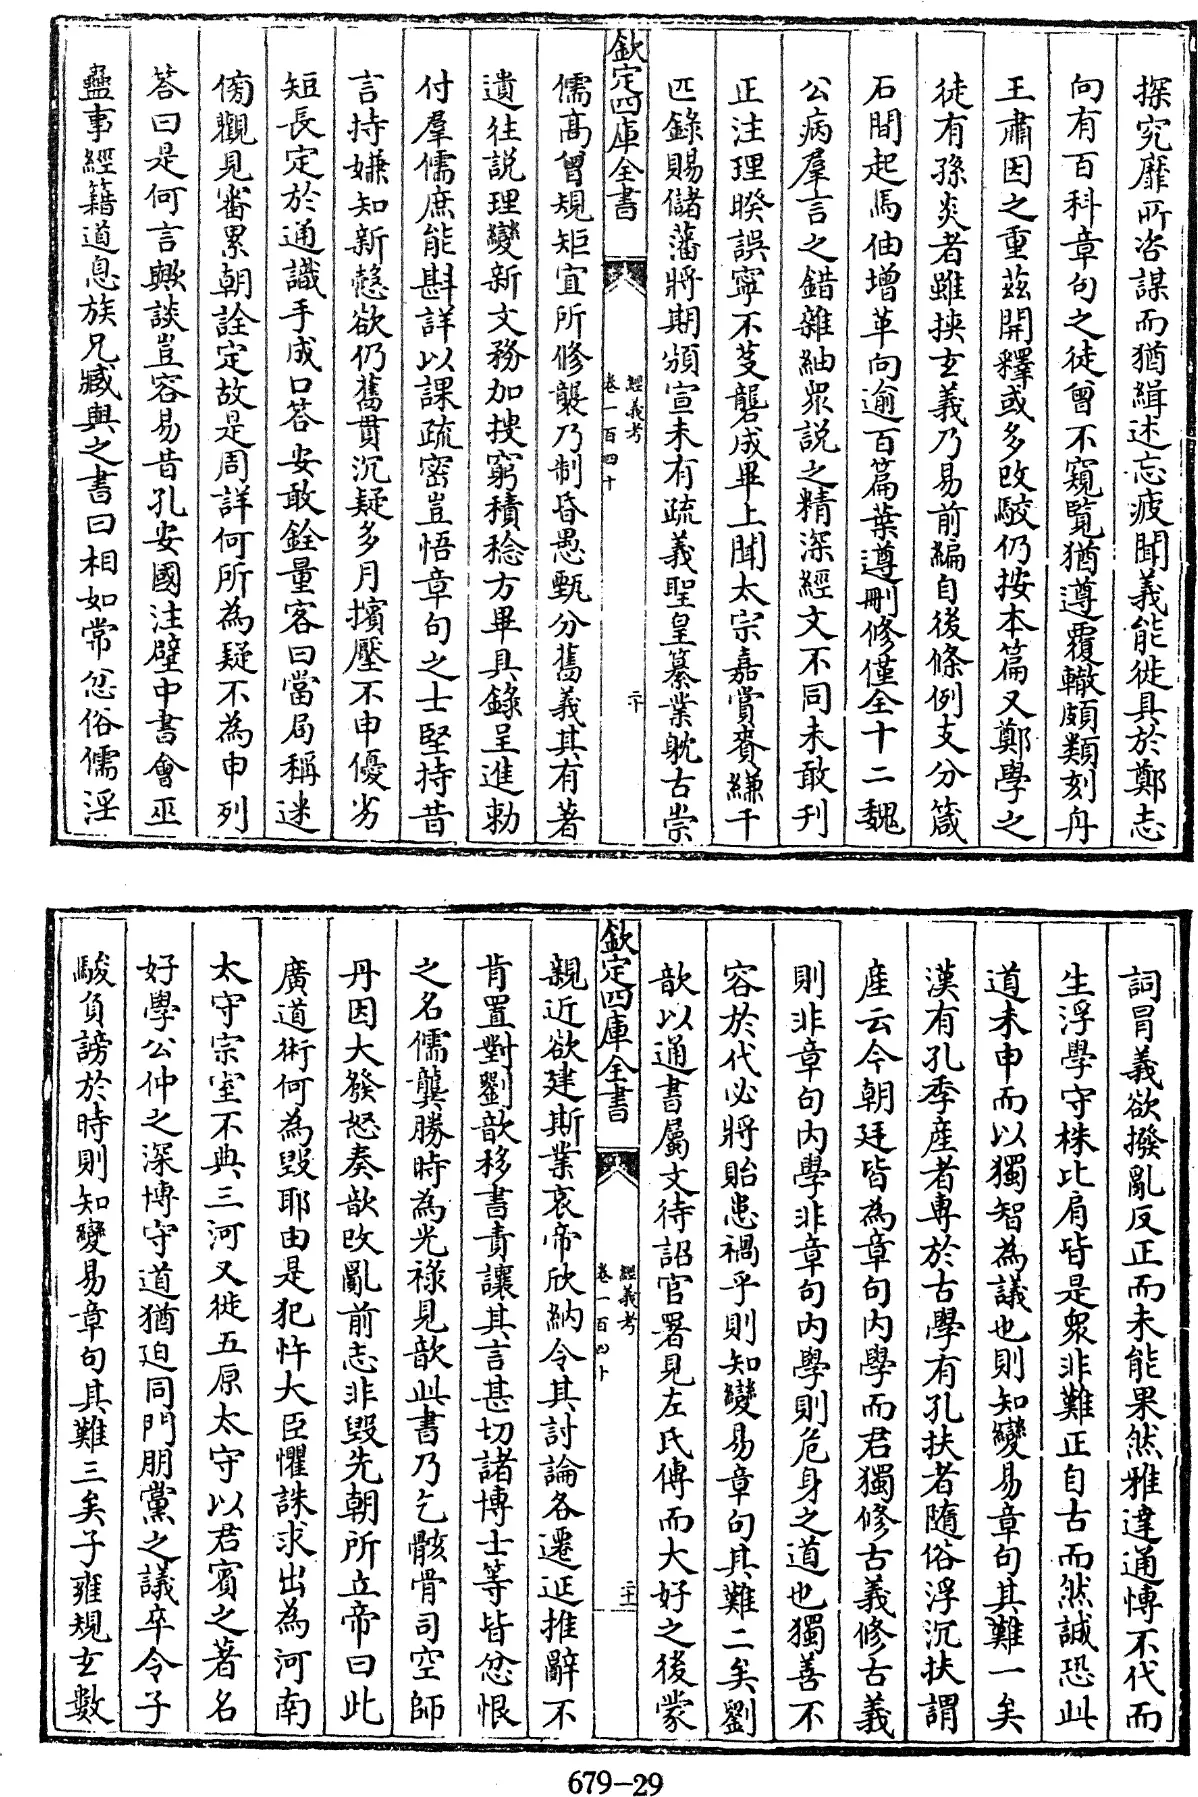 探究靡所咨謀而猶緝述忘疲聞義能徙具於鄭志
向有百科章句之徒曾不窺覽猶遵覆轍頗類刻舟
王肅因之重茲開釋或多改駮仍按本篇又鄭學之
徒有孫炎者雖挾玄義乃易前編自後條例支分箴
石間起馬伷增革向逾百篇葉遵刪修僅全十二魏
公病羣言之錯雜紬衆説之精深經文不同未敢刊
正注理睽誤寧不芟礱成畢上聞太宗嘉賞賚縑千
匹錄賜儲藩將期頒宣未有疏義聖皇纂業躭古崇
欽定四庫全書
經義考
卷一百四十
二十
儒髙曾規矩宜所修襲乃制昏愚甄分舊義其有著
遺往説理變新文務加捜窮積稔方畢具錄呈進勅
付羣儒庶能斟詳以課疏密豈悟章句之士堅持昔
言持嫌知新慤欲仍舊貫沉疑多月擯壓不申優劣
短長定於通識手成口答安敢銓量客曰當局稱迷
傍觀見審累朝詮定故是周詳何所為疑不為申列
答曰是何言歟談豈容易昔孔安國注壁中書會巫
蠱事經籍道息族兄臧與之書曰相如常忿俗儒淫
詞冒義欲撥亂反正而未能果然雅達通博不代而
生浮學守株比肩皆是衆非難正自古而然誠恐此
道未申而以獨智為議也則知變易章句其難一矣
漢有孔季產者專於古學有孔扶者隨俗浮沉扶謂
産云今朝廷皆為章句内學而君獨修古義修古義
則非章句内學非章句内學則危身之道也獨善不
容於代必將貽患禍乎則知變易章句其難二矣劉
歆以通書屬文待詔官署見左氏傳而大好之後蒙
欽定四庫全書
經義考
卷一百四十
二十一
親近欲建斯業哀帝欣納令其討論各遷延推辭不
肯置對劉歆移書責讓其言甚切諸博士等皆忿恨
之名儒龔勝時為光祿見歆此書乃乞骸骨司空師
丹因大發怒奏歆改亂前志非毀先朝所立帝曰此
廣道術何為毀耶由是犯忤大臣懼誅求出為河南
太守宗室不典三河又徙五原太守以君賓之著名
好學公仲之深博守道猶迫同門朋黨之議卒令子
駿負謗於時則知變易章句其難三矣子雍規玄數
679-29